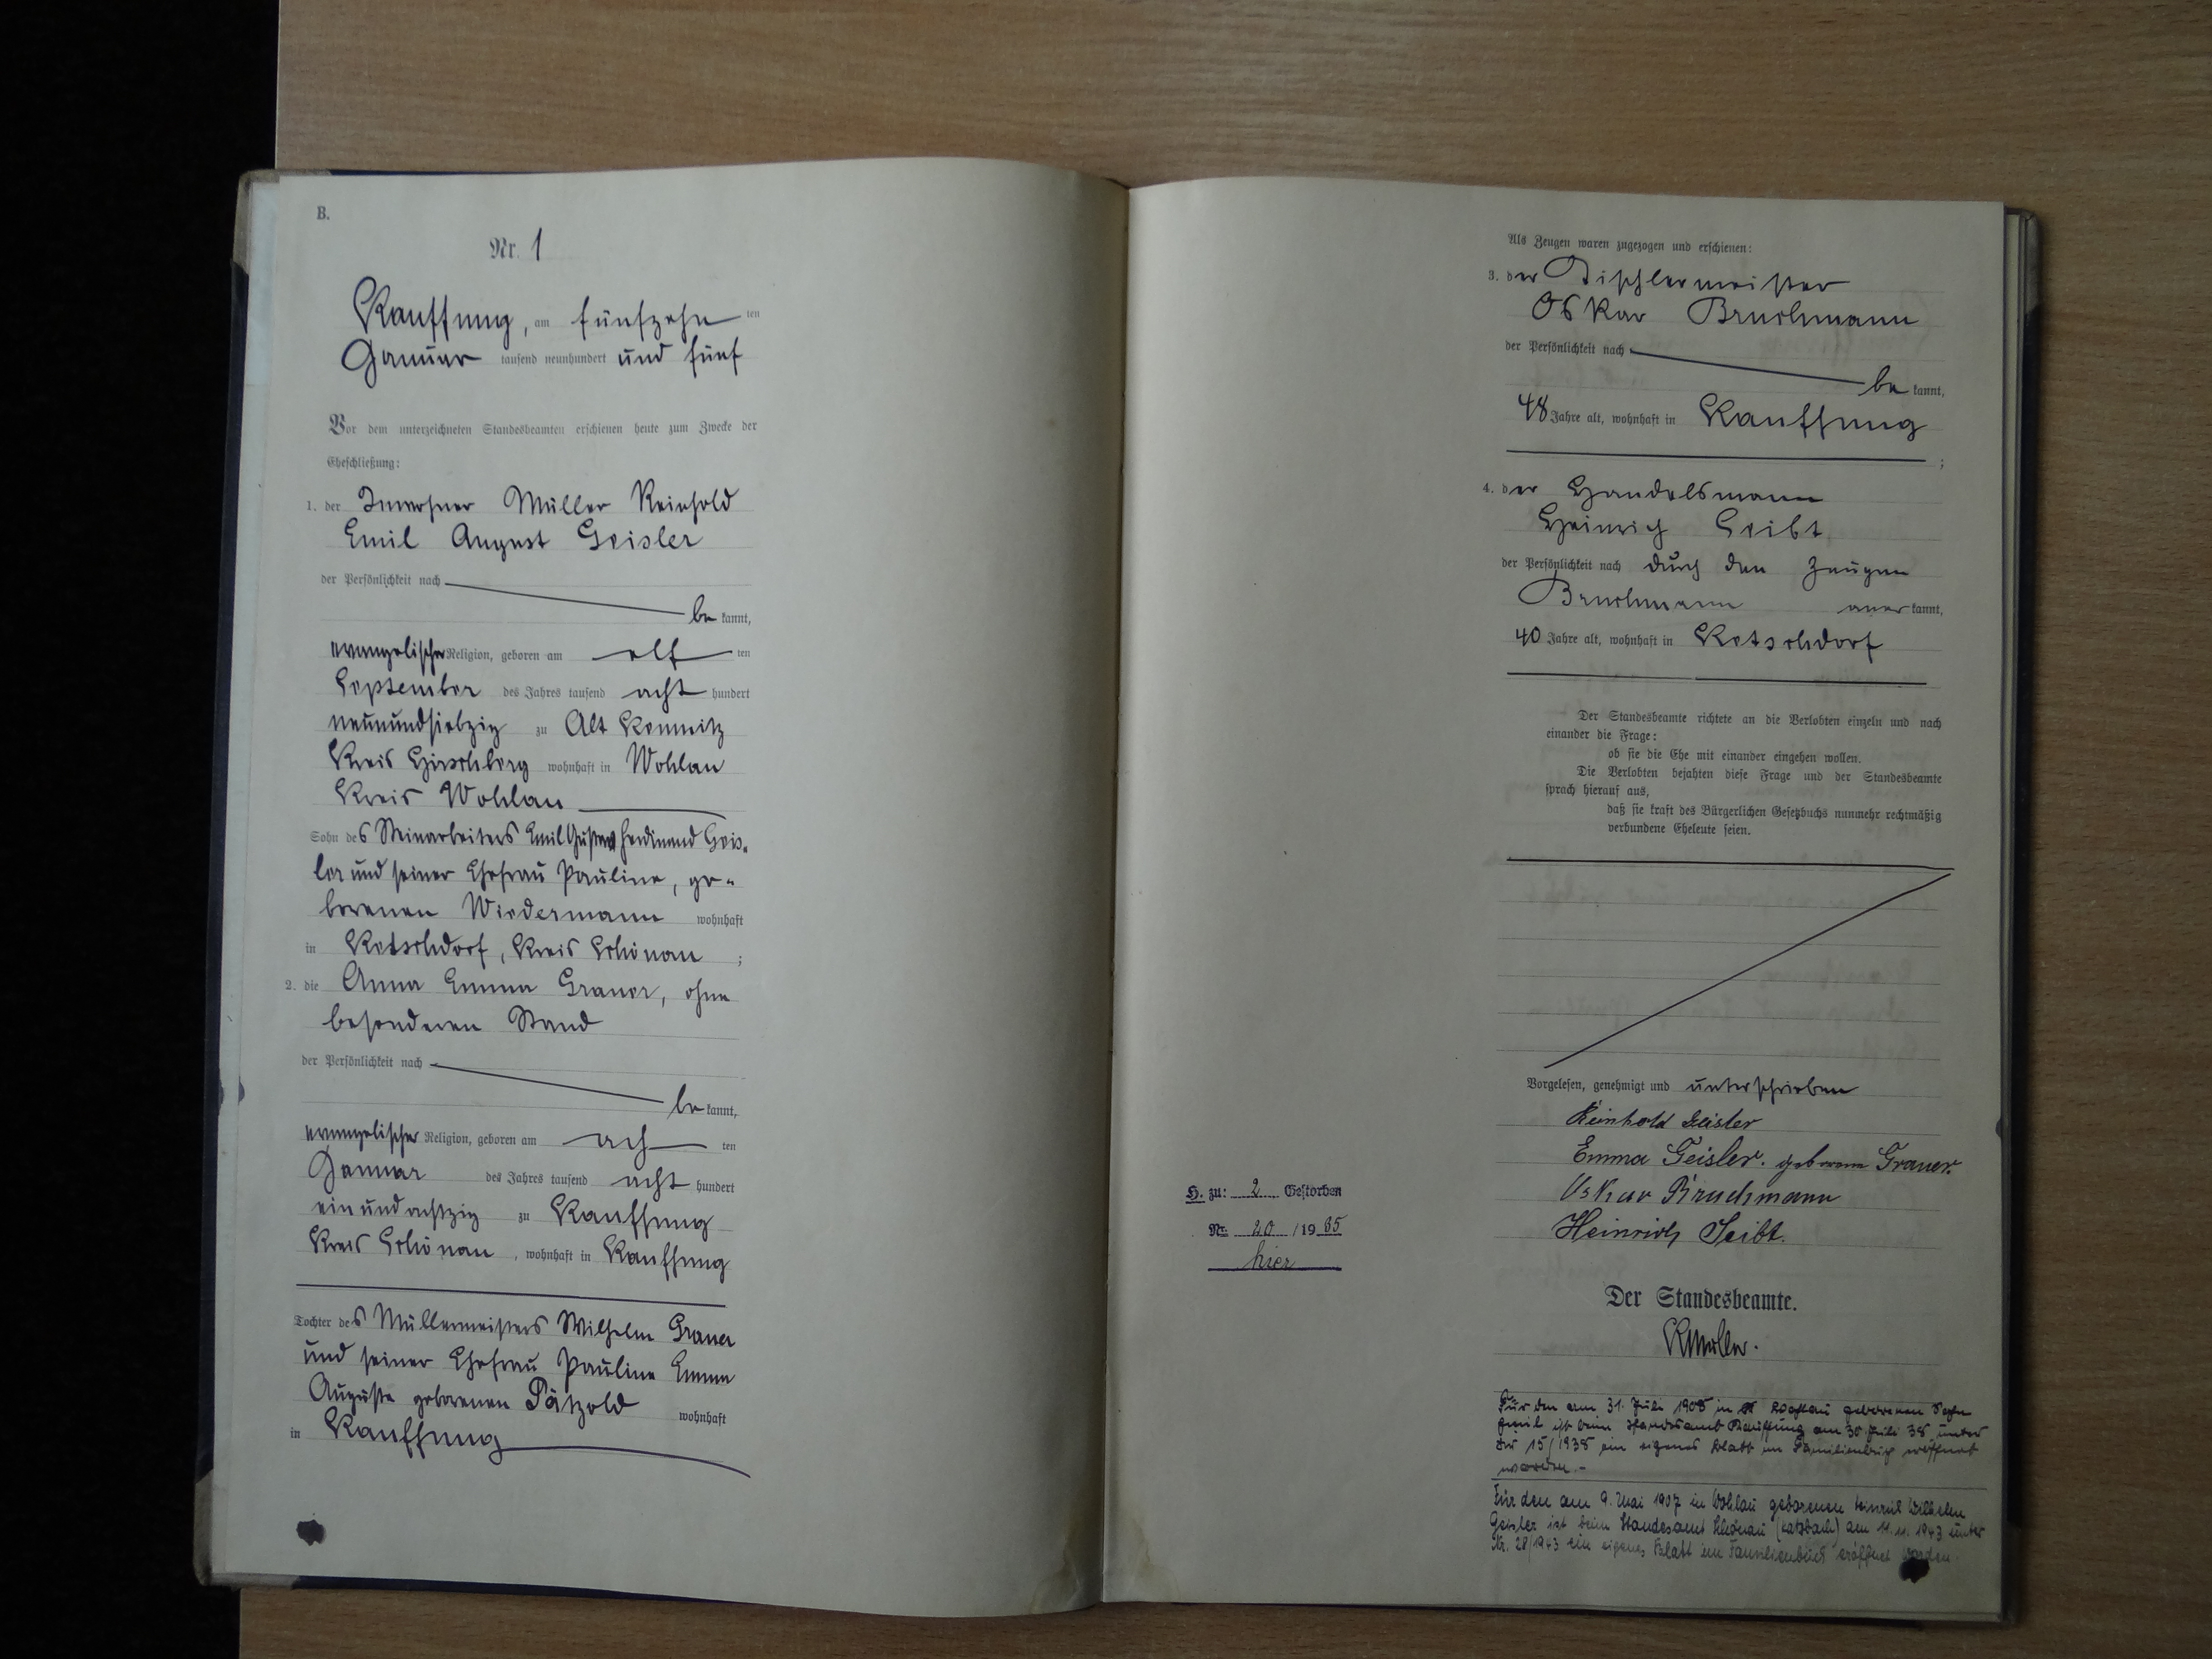 B.
Nr. 1
Kauffung, am fünfzehn ten
Januar tausend neunhundert und fünf
Vor dem unterzeichneten Standesbeamten erschienen heute zum Zwecke der
Eheschließung:
1. der Inwohner Müller Reinhold
Emil August Geisler
der Persönlichkeit nach
be kannt,
evangelischer Religion, geboren am elf ten
September des Jahres tausend acht hundert
neunundsiebzig zu Alt Kemnitz
Kreis Hirschberg wohnhaft in Wohlau
Kreis Wohlau
Sohn des Steinarbeiters Emil Gustav Ferdinand Geis-
ler und seiner Ehefrau Pauline, ge-
borenen Wiedermann wohnhaft
in Ketschdorf, Kreis Schönau ;
2. die Anna Emma Grauer, ohne
besonderen Stand
der Persönlichkeit nach
be kannt,
evangelischer Religion, geboren am ach ten
Januar des Jahres tausend acht hundert
einundachtzig zu Kauffung
Kreis Schönau, wohnhaft in Kauffung
Tochter des Müllermeisters Wilhelm Grauer
und seiner Ehefrau Pauline Emma
Auguste geborenen Pätzold wohnhaft
in Kauffung
H. zu: 2 Gestorben
Nr. 20 /19 65
hier
Als Zeugen waren zugezogen und erschienen:
3. der Tischlermeister
Oskar Bruchmann
der Persönlichkeit nach
be kannt,
48 Jahre alt, wohnhaft in Kauffung
;
4. der Handelsmann
Heinrich Seibt
der Persönlichkeit nach durch den Zeugen
Bruchmann aner kannt,
40 Jahre alt, wohnhaft in Ketschdorf
Der Standesbeamte richtete an die Verlobten einzeln und nach
einander die Frage:
ob sie die Ehe mit einander eingehen wollen.
Die Verlobten bejahten diese Frage und der Standesbeamte
sprach hierauf aus,
daß sie kraft des Bürgerlichen Gesetzbuchs nunmehr rechtmäßig
verbundene Eheleute seien.
Vorgelesen, genehmigt und unterschrieben
Reinhold Geisler
Emma Geisler. geborene Grauer.
Oskar Bruchmann
Heinrich Seibt.
Der Standesbeamte.
Für den am 31. Juli 1905 in Wohlau geborenen Sohn
Emil ist beim Standesamt Kauffung am 30. Juli 38 unter
Nr 15/1938 ein eigenes Blatt im Familienbuch eröffnet
worden.-
Für den am 9. Mai 1907 in Wohlau geborenen Heinrich Wilhelm
Geisler ist beim Standesamt Schönau (Katzbach) am 11.11.1943 unter
Nr. 28/1943 ein eigenes Blatt im Familienbuch eröffnet worden.